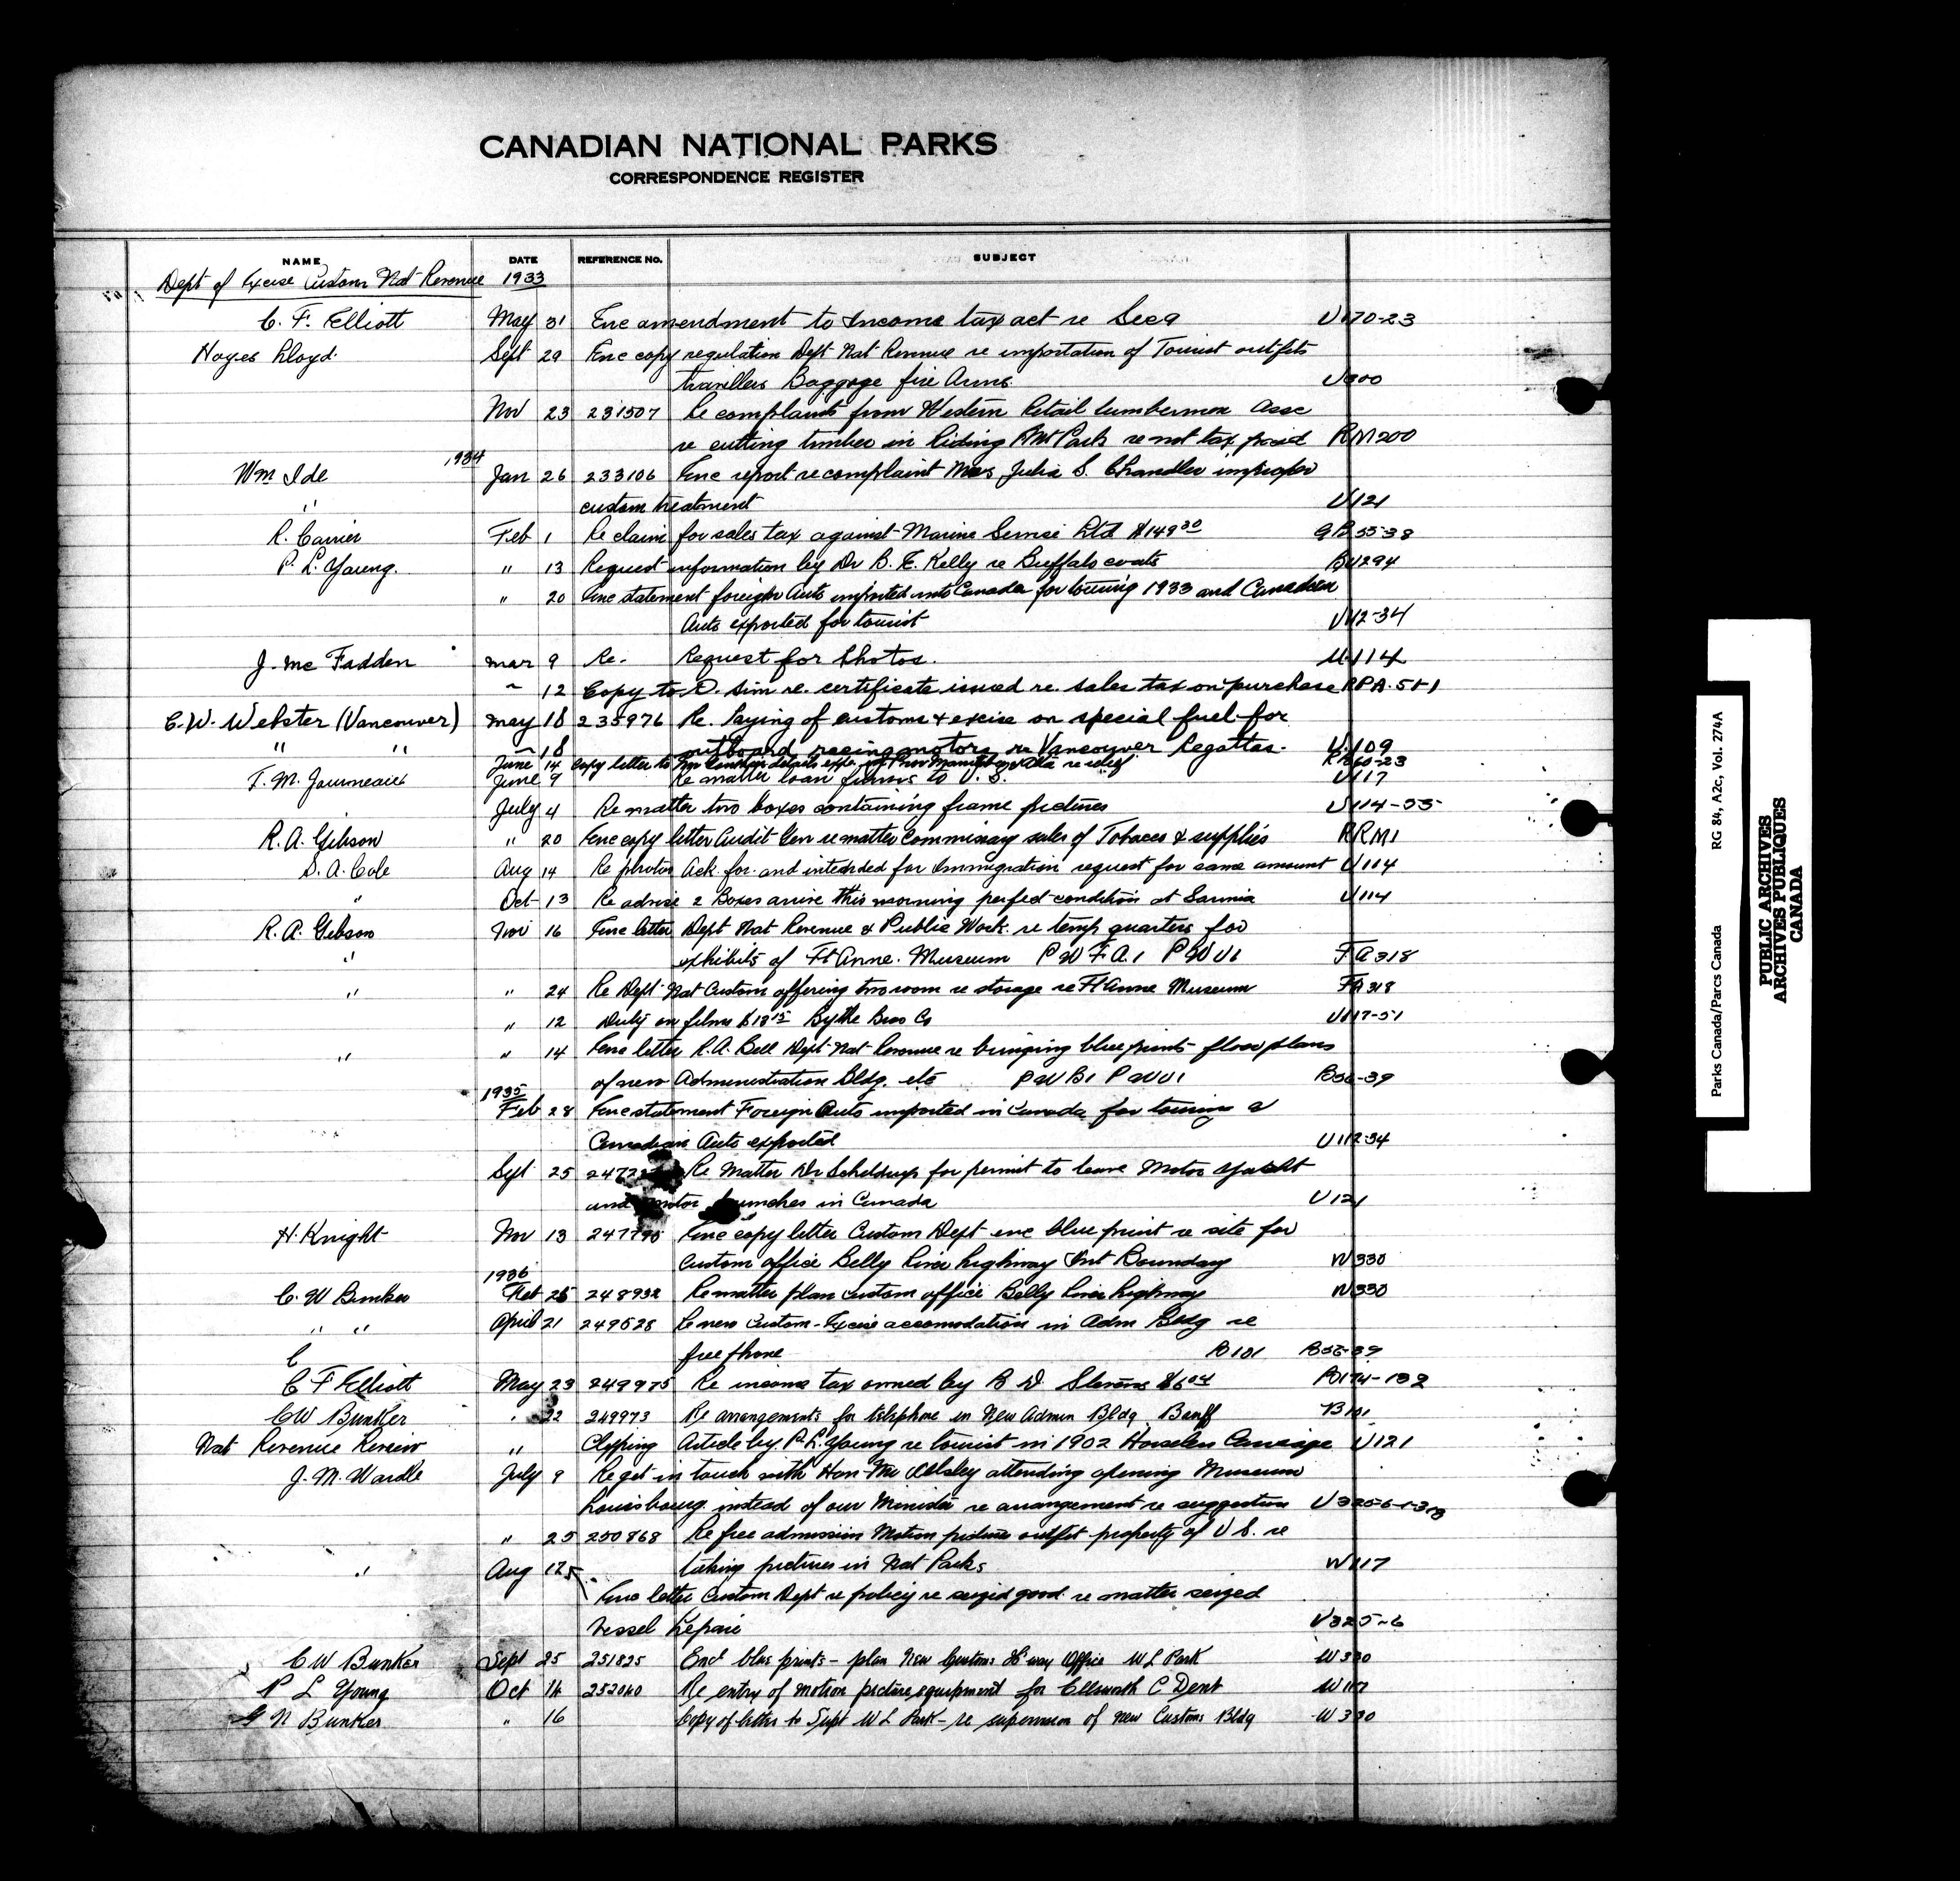 CANADIAN NATIONAL PARKS
CORRESPONDENCE REGISTER
NAME DATE REFERENCE No. SUBJECT
Dept of Excise Custom Nat Revenue 1933
C. F. Elliott May 31 Enc amendment to Income tax act re Sec 9 U170-23
Hoyes Lloyd. Sept 29 Enc copy regulation Dept Nat Revenue re importation of Tourist outfits
travellers Baggage fire Arms. U300
Nov 23 231507 Re complaints from Western Retail Lumbermen Assc
re cutting timber in Riding Mt Park re not tax paid RM200
1934
Wm Ide Jan 26 233106 Enc report re complaint Mrs Julia S. Chandler improper
" custom treatment U121
R. Carrier Feb 1 Re claim for sales tax against Marine Service Ltd $149 30 GB55-38
P. L. Young. " 13 Request information by Dr B. E. Kelly re Buffalo coats BU294
" 20 Enc statement foreign Auto imported into Canada for touring 1933 and Canadian
Auto exported for tourist U112-34
J. Mc Fadden Mar 9 Re. Request for Photos. U.114
" 12 Copy to D. Sim re. certificate issued re. sales tax on purchase RPA.51-1
C. W. Webster (Vancouver) May 18 235976 Re. Paying of customs & excise on special fuel for
" " " 18 outboard racing motors re Vancouver Regattas. U.109
June 14 Copy letter to Mr re relief 60-23
T. M. Journeaux June 9 Re matter loan films to U.S. U117
July 4 Re matter two boxes containing frame pictures U114-33
R. A. Gibson " 20 Enc copy letter Audit Gen re matter Commissary sales of Tobacco & supplies RRM1
S. A. Cole Aug 14 Re photos Ack. for and intended for Immigration request for same amount U114
" Oct 13 Re advise 2 Boxes arrive this morning perfect condition at Sarnia U114
R. A. Gibson Nov 16 Enc letter Dept Nat Revenue & Public Work. re temp quarters for
" exhibits of Ft Anne. Museum PWFA1 PWU1 FA318
" " 24 Re Dept Nat Custom offering two room re storage re Ft Anne Museum FA318
" 12 Duty on films $13 15 Bythe Bros Co U117-51
" " 14 Enc letter R.A. Bell Dept Nat Revenue re bringing blueprints floor plans
of new Administration Bldg. etc PWB1 PWU1 B56-39
1935
Feb 28 Enc statement Foreign Auto imported in Canada for touring &
Canadian Auto exported U112-34
Sept 25 2472 Re Matter Dr Scheldrup for permit to leave Motor Yacht
and motor launches in Canada U121
H. Knight Nov 13 247790 Enc copy letter Custom Dept enc blue print re site for
Custom office Belly River highway Int Boundary W330
1936
C. W Bunker Feb 25 248932 Re matter plan custom office Belly River highway W330
" " April 21 249528 Re new Custom-Excise accomodation in Adm Bldg re
C free phone B101 B56-39
C F Elliott May 23 249975 Re income tax owned by B D Stevens $6 04 B174-132
CW Bunker " 22 249973 Re arrangements for telephone in New Admin Bldg Banff B101
Nat Revenue Review " Clipping Article by P. L. Young re tourist in 1902 Horseless Carriage U121
J. M. Wardle July 9 Re get in touch with Hon Mr Ilsley attending opening Museum
Louisbourg. instead of our Minister re arrangement re suggestion U325-6-1-313
" 25 250868 Re free admission Motion picture outfit property of U S. re
" Aug 12 taking pictures in Nat Parks W117
Enc letter Custom Dept re policy re seized good re matter seized
Vessel Repair U325-6
C W Bunker Sept 25 251825 Encl blue prints - plan New Customs H'way Office W L Park W330
P L Young Oct 14 252040 Re entry of motion picture equipment for Ellsworth C Dent W117
G N Bunker " 16 Copy of letter to Supt W L Park - re supervision of new Customs Bldg W330
Parks Canada/Parcs Canada RG 84, A2c, Vol. 274A
PUBLIC ARCHIVES
ARCHIVES PUBLIQUES
CANADA